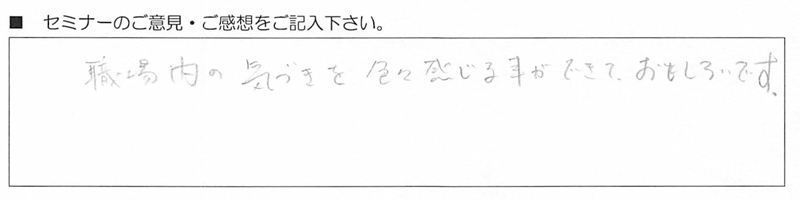 ■ セミナーのご意見・ご感想をご記入下さい。
職場内の気づきを色々感じる事ができて、おもしろいです。